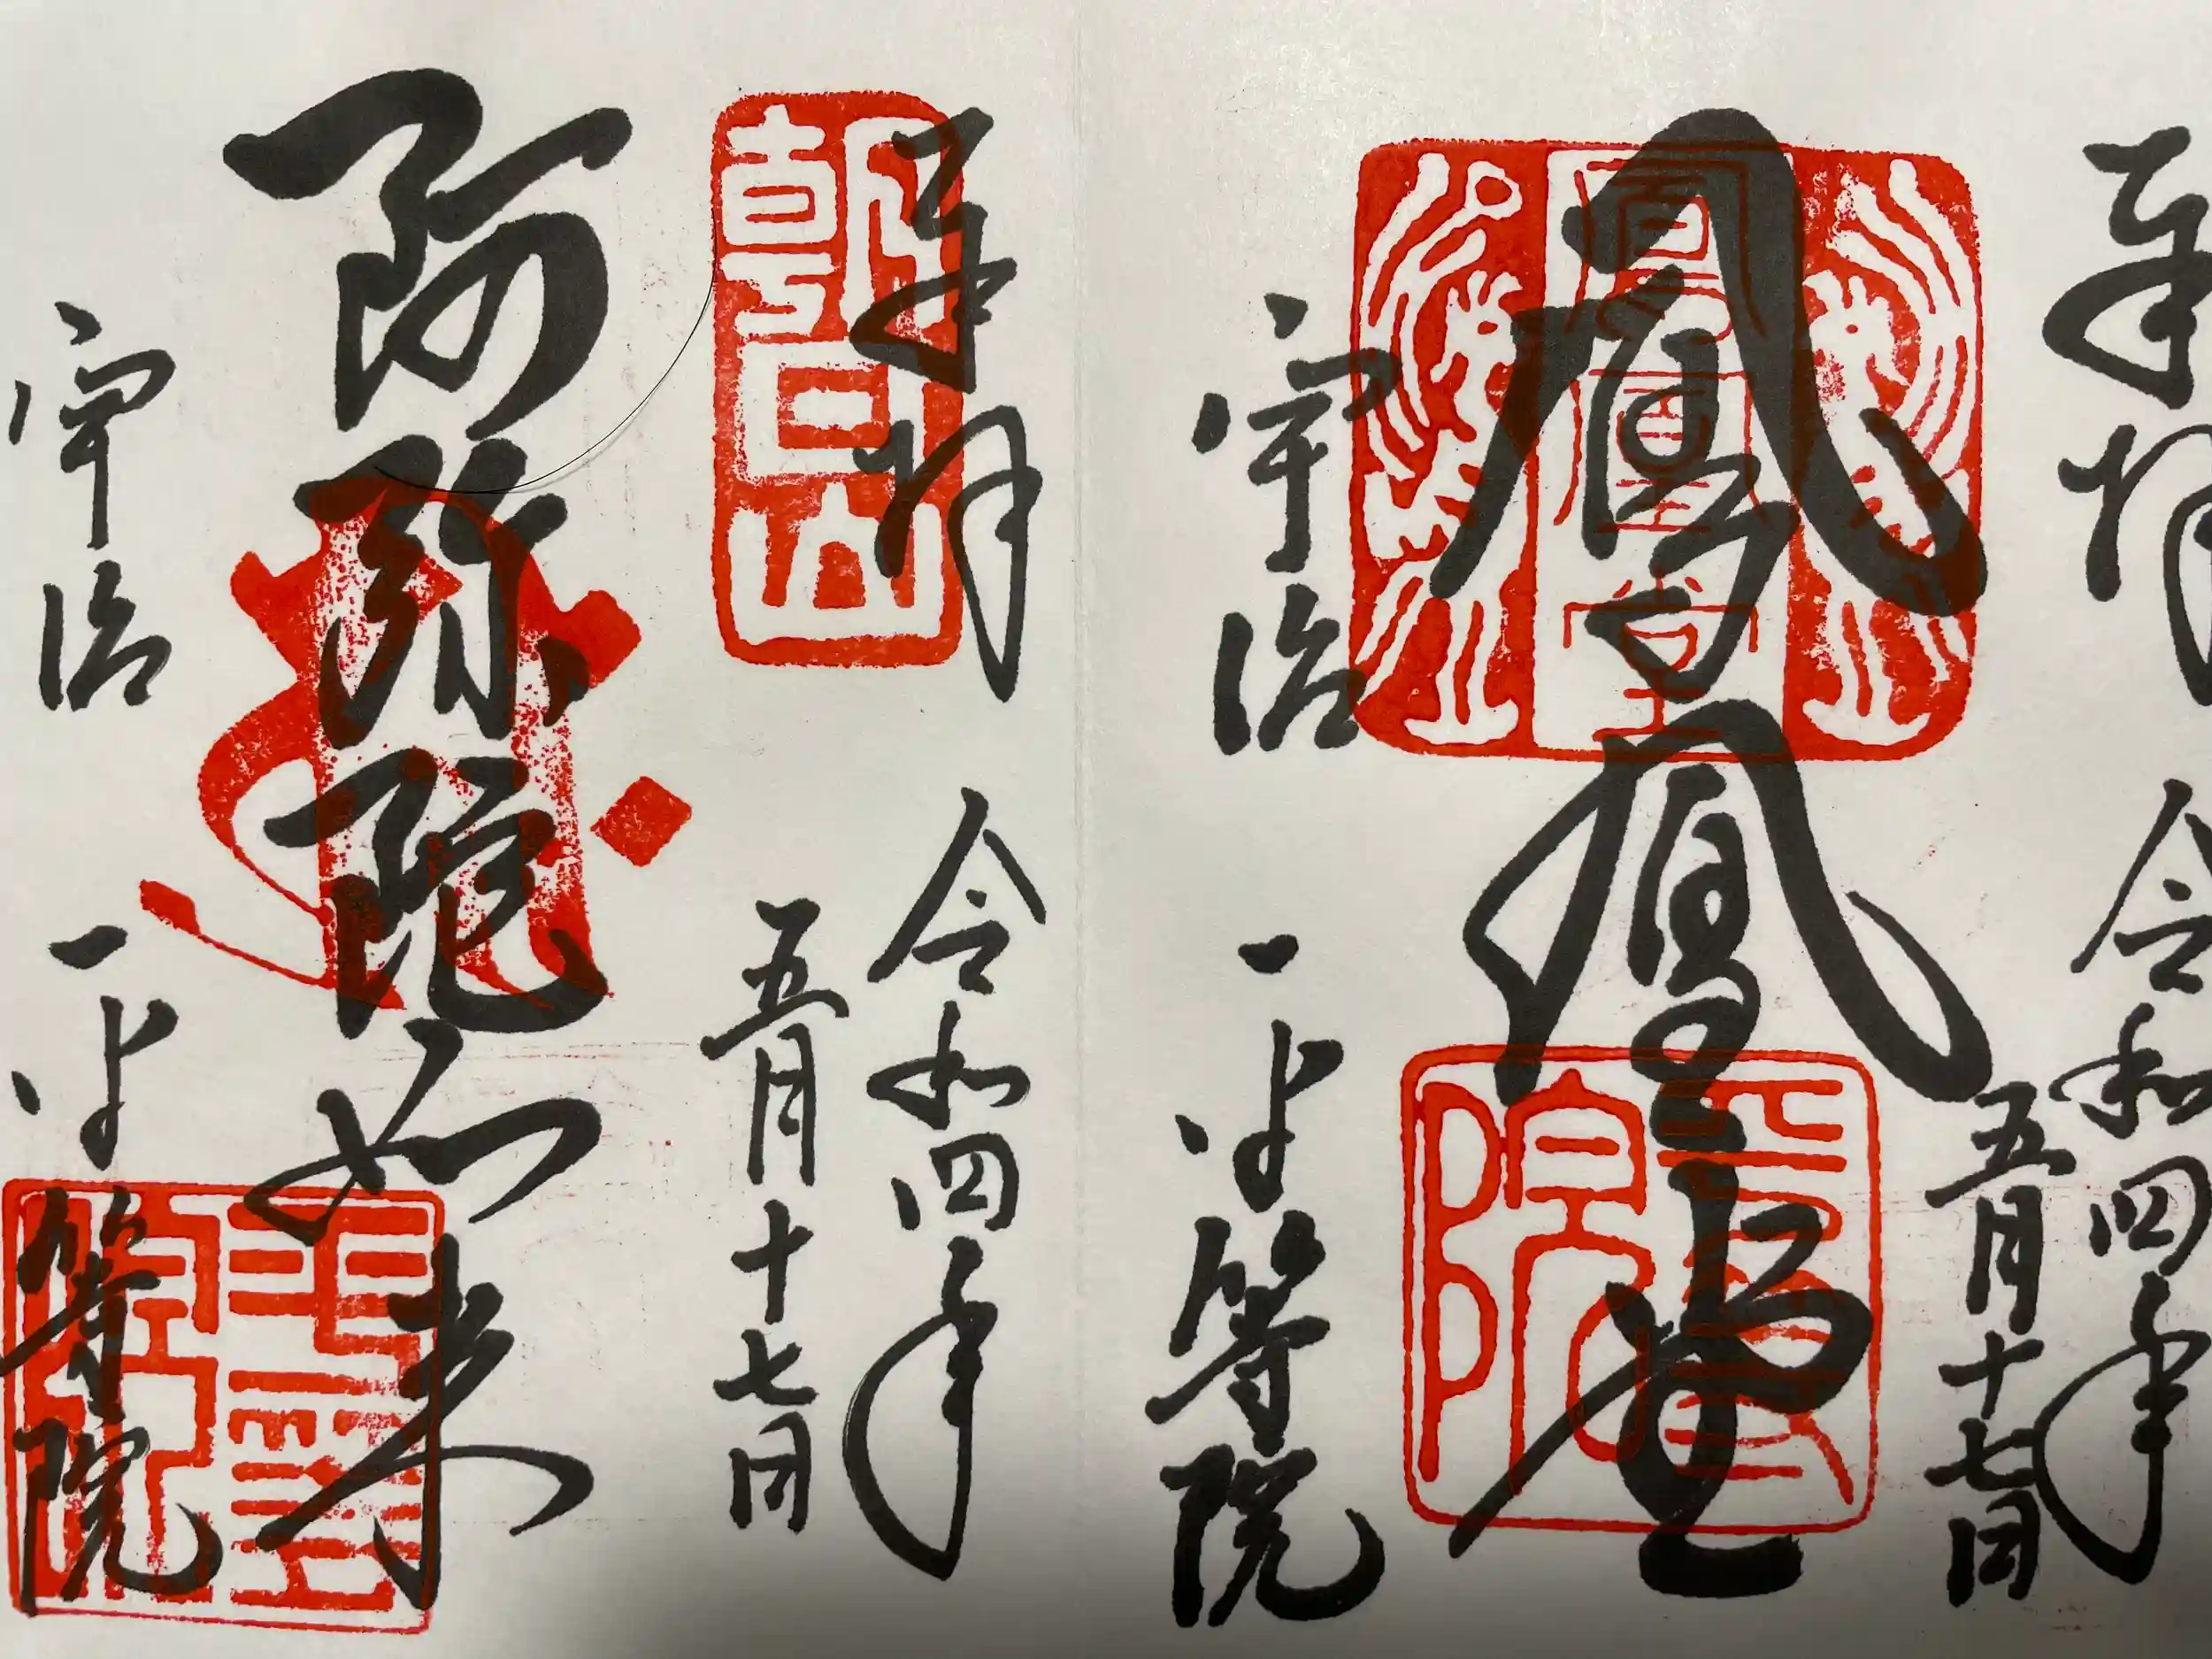 奉拝
令和四年
五月十七日
鳳凰堂
鳳凰堂
平等院
宇治
平等院
奉拝
朝日山
令和四年
五月十七日
阿弥陀如来
平等院
宇治
平等院